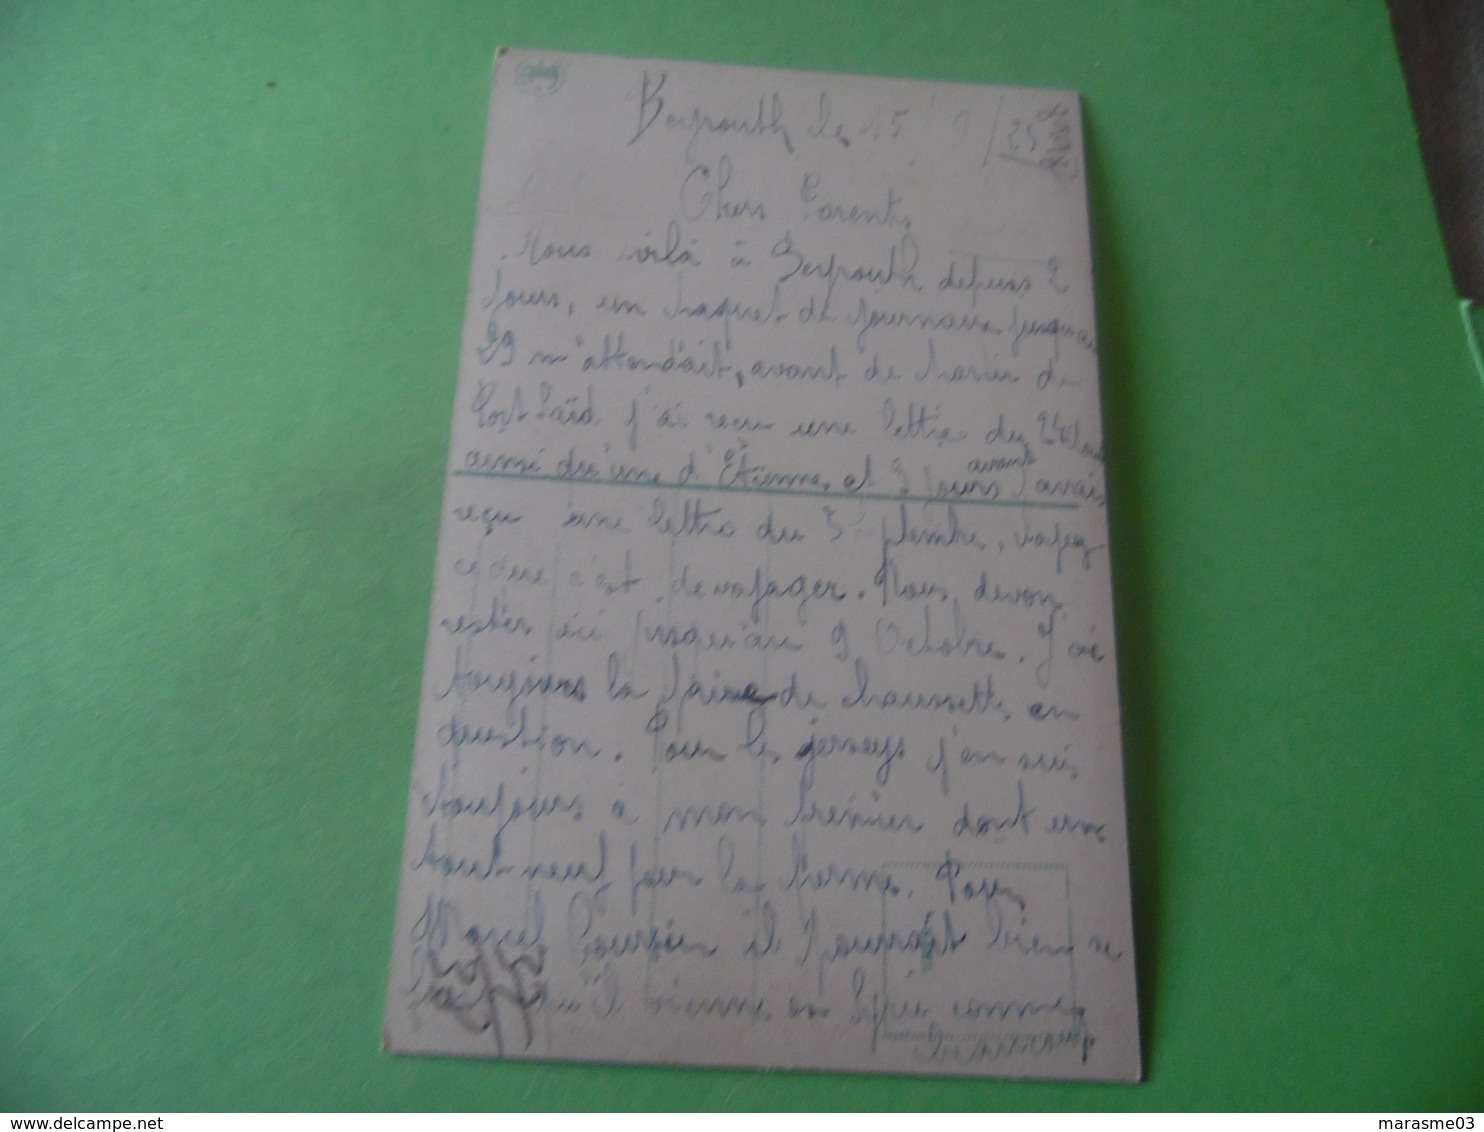 Beyrouth le 15 / 9 / 25
Chers Parents
Nous vila à Beyrouth depuis 2
jours, un paquet de journaux jusqu'au
29 m'attendait, avant de partir de
Port Saïd j'ai reçu une lettre du
ainsi qu'une d'Etienne, et 2 jours avant j'avais
reçu une lettre du 5 , voyez
ce que c'est de voyager. Nous devons
rester ici jusqu'au 9 Octobre. J'ai
toujours la paire de chaussettes en
question. Pour les jerseys j'en suis
toujours à mon premier dont un
tout neuf pour la ferme. Pour
il pourrait bien se
qu'il vienne en Syrie comme
marasme03